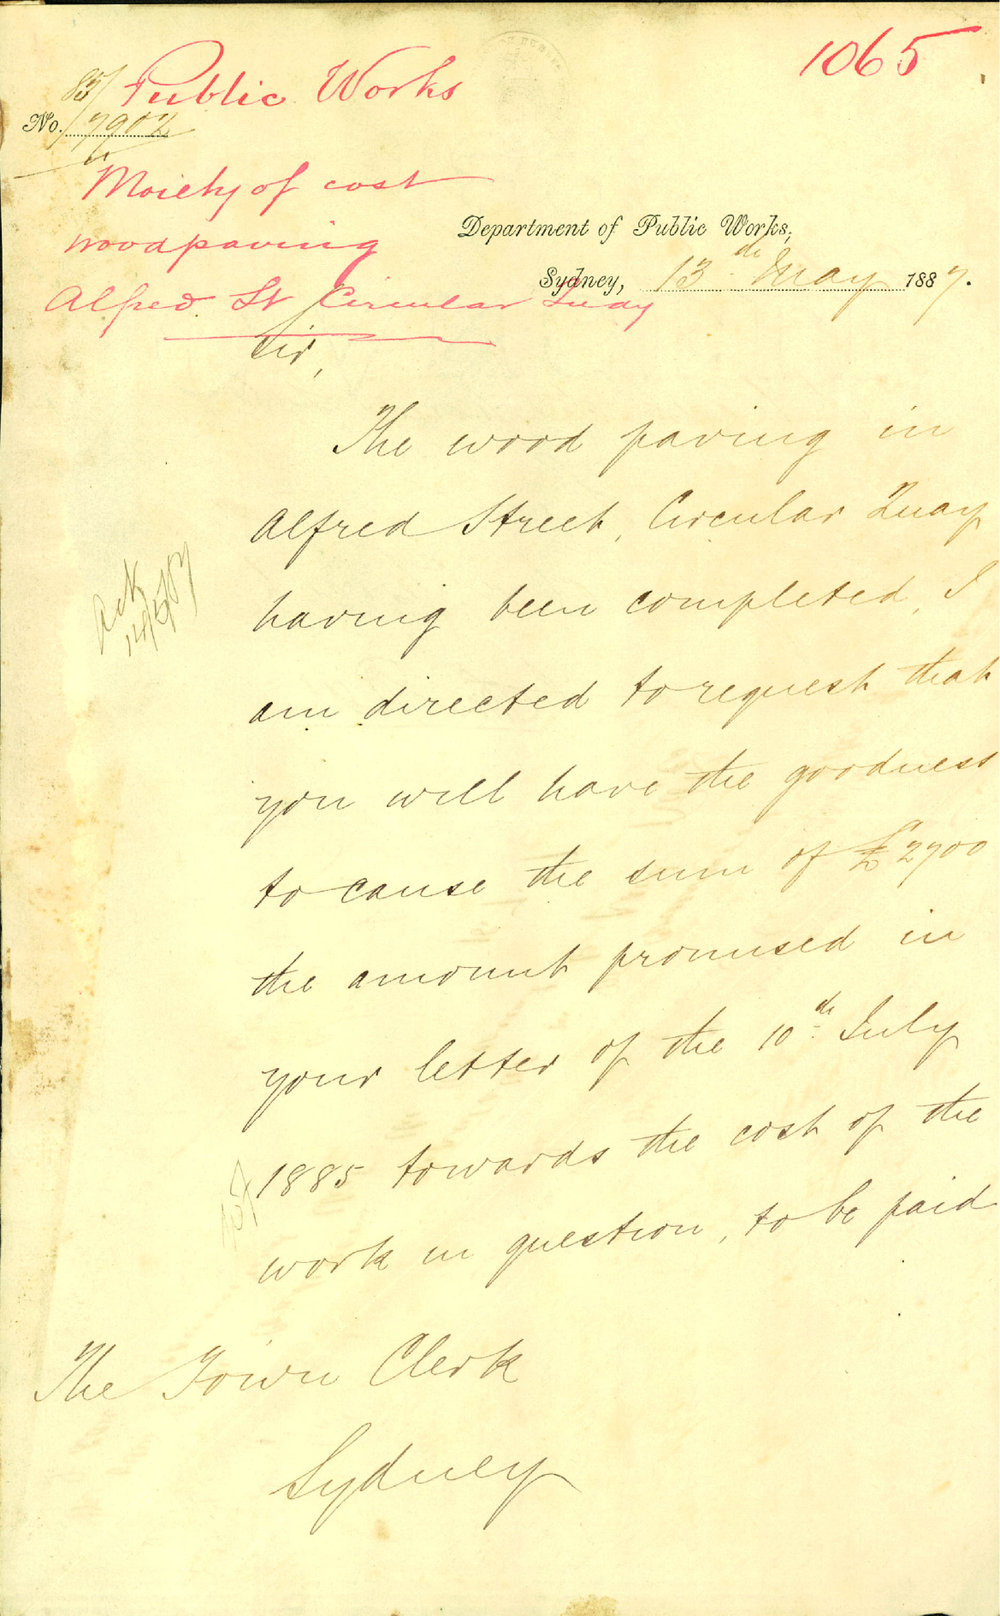 1065
Public Works
85/
No. 7902
Moiety of cost
woodpaving
Alfred St Circular Quay
Department of Public Works,
Sydney, 13th May 1887.
Sir,
The wood paving in
Alfred Street, Circular Quay
having been completed, I
am directed to request that
you will have the goodness
to cause the sum of £2700
the amount promised in
your letter of the 10th July
1885 towards the cost of the
work in question, to be paid
Ack
14/5/87
The Town Clerk
Sydney